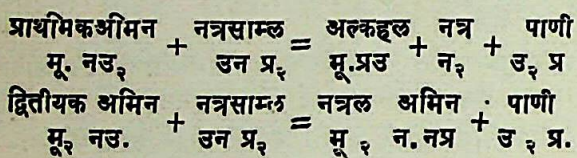 प्राथमिकअमिन + नत्रसाम्ल = अल्कहल + नत्र + पाणी
मू. नउ₂ उन प्र₂ मू.प्रउ न₂ उ₂ प्र
द्वितीयक अमिन + नत्रसाम्ल = नत्रल अमिन + पाणी
मू₂ नउ. उन प्र₂ मू ₂ न. नप्र उ ₂ प्र.